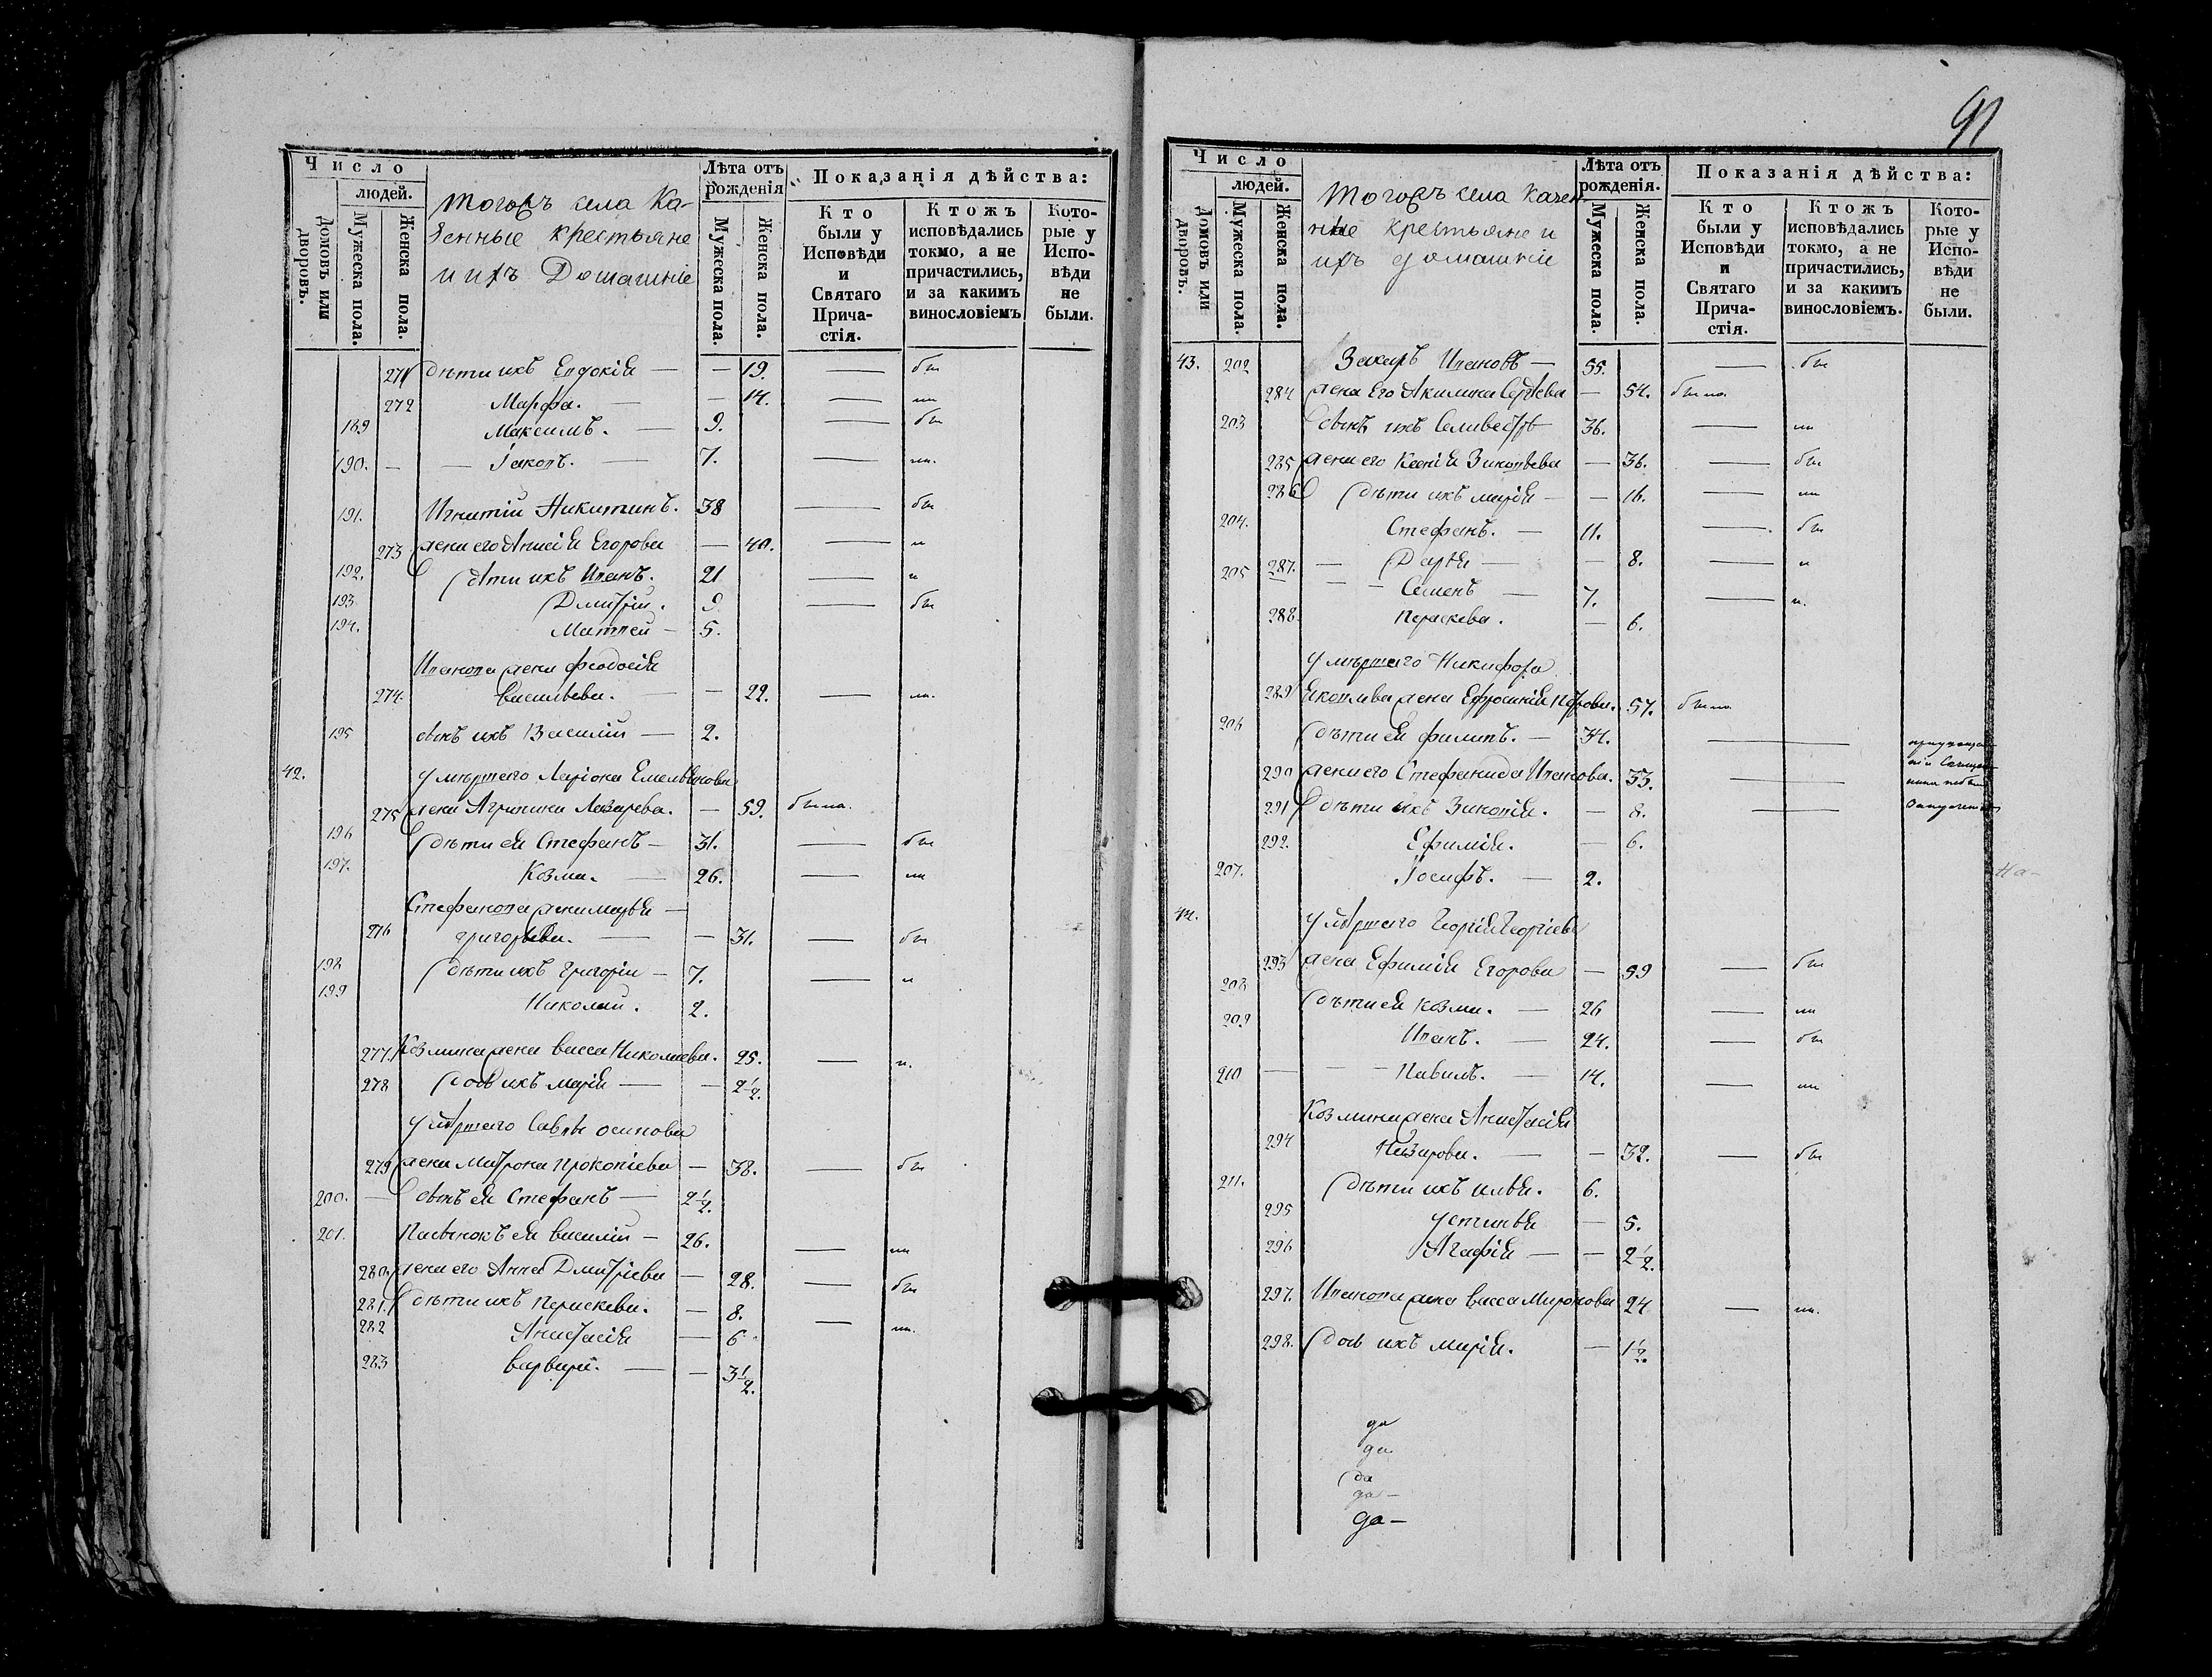 Число
людей.
Домовъ или дворовъ.
Мужеска пола.
Женска пола.
Тогожъ села Ка-
зенные крестьяне
и ихъ Домашніе
Лѣта отъ рожденія
Мужеска пола.
Женска пола.
Показанія дѣйства:
Кто были у Исповѣди и Святаго Прича- стія.
Ктожъ исповѣдались токмо, а не причастились, и за какимъ винословіемъ
Кото- рые у Испо- вѣди не были.
271 дѣти ихъ Евдокія — — 19. —
272 Марфа. — — 14. —
189 Максимъ. — 9. —
190. — — Іаковъ. — 7. —
191. Игнатій Никитинъ. 38 —
273 жена его Анисія Егорова — 40. — и
192. дѣти ихъ Иванъ. 21 — и
193. Дмитрій. 9 —
194. Матвей — 5.
Иванова жена Феодосія
274. Васильева. — — 22. —
195 сынъ ихъ Василій — 2.
42. умершаго Ларіона Емельянова
275 жена Агрипина Лазарева. — 59. была.
196 дѣти ея Стефанъ — 31. —
197. Козма. — 26. —
Стефанова жена Марья —
276 Григорьева. — — 31. —
198 дѣти ихъ Григорій — 7. — и
199 Николай. 2.
277. Козмина жена Васса Николаева. 25. — и.
278 дочь ихъ Марія — — 2 1/2.
умершаго Савы Осипова
279 жена Матрона Прокопіева — 38. —
200. — сынъ ея Стефанъ — 2 1/2.
201. Пасынокъ ея Василій — 26. —
280. жена его Анна Дмитріева — 28. —
281. дѣти ихъ Параскева. — 8. —
282 Анастасія — 6
283 Варвара. — — 3 1/2.
91
Число
людей.
Домовъ или дворовъ.
Мужеска пола.
Женска пола.
Тогожъ села Казен-
ные крестьяне и
ихъ домашніе
Лѣта отъ рожденія.
Мужеска пола.
Женска пола.
Показанія дѣйства:
Кто были у Исповѣди и Святаго Прича- стія.
Ктожъ исповѣдались токмо, а не причастились, и за какимъ винословіемъ.
Кото- рые у Испо- вѣди не были.
43. 202 Захаръ Ивановъ — 55. —
284 жена Его Акилина Сергѣева — 54. была.
203 сынъ ихъ Селивестръ 36. —
285 жена его Ксенія Зиновьева — 36. —
286 дѣти ихъ Марія — — 16. —
204. Стефанъ. — 11. —
287. — Дарья — — 8. — и
205 — — Семенъ — 7. — и.
288 Параскева. — 6.
умершаго Никифора
289 Яковлева жена Ефросинія Петрова. 57. была.
206 дѣти ея Филипъ. — 34. —
290 жена его Стефанида Иванова. 33. —
291 дѣти ихъ Зиновія. — 8. —
292. Ефимія. — 6.
207. Іосифъ. — 2.
44. умершаго Георгія Георгіева
293 жена Ефимія Егорова — 59 —
208. дѣти ея Козма. — 26 —
209 Иванъ. — 24. —
210 — — — Павилъ. — 14. —
Козмина жена Анастасія
294 Назарова. — — 32. —
211. дѣти ихъ Илья. 6.
295 Устинья — 5.
296 Агафія — — 2 1/2.
297. Иванова жена Васса Миронова 24 —
298. дочь ихъ Марія. — 1 1/2.
да
да
да
да —
да —